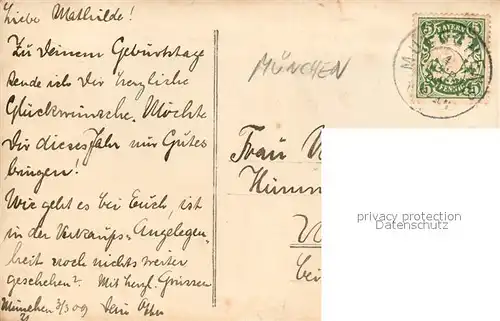 Liebe Mathilde!
Zu Deinem Geburtstage
sende ich Dir herzliche
Glückwünsche. Möchte
Dir dieses Jahr nur Gutes
bringen!
Wie geht es bei Euch, ist
in der Verkaufs-Angelegen-
heit noch nichts weiter
geschehen? Mit herzl. Grüssen
München 3/3 09 Dein
MÜNCHEN
BAYERN
5 5
5 5
PFENNIG
MÜ
Frau
privacy protection
Datenschutz